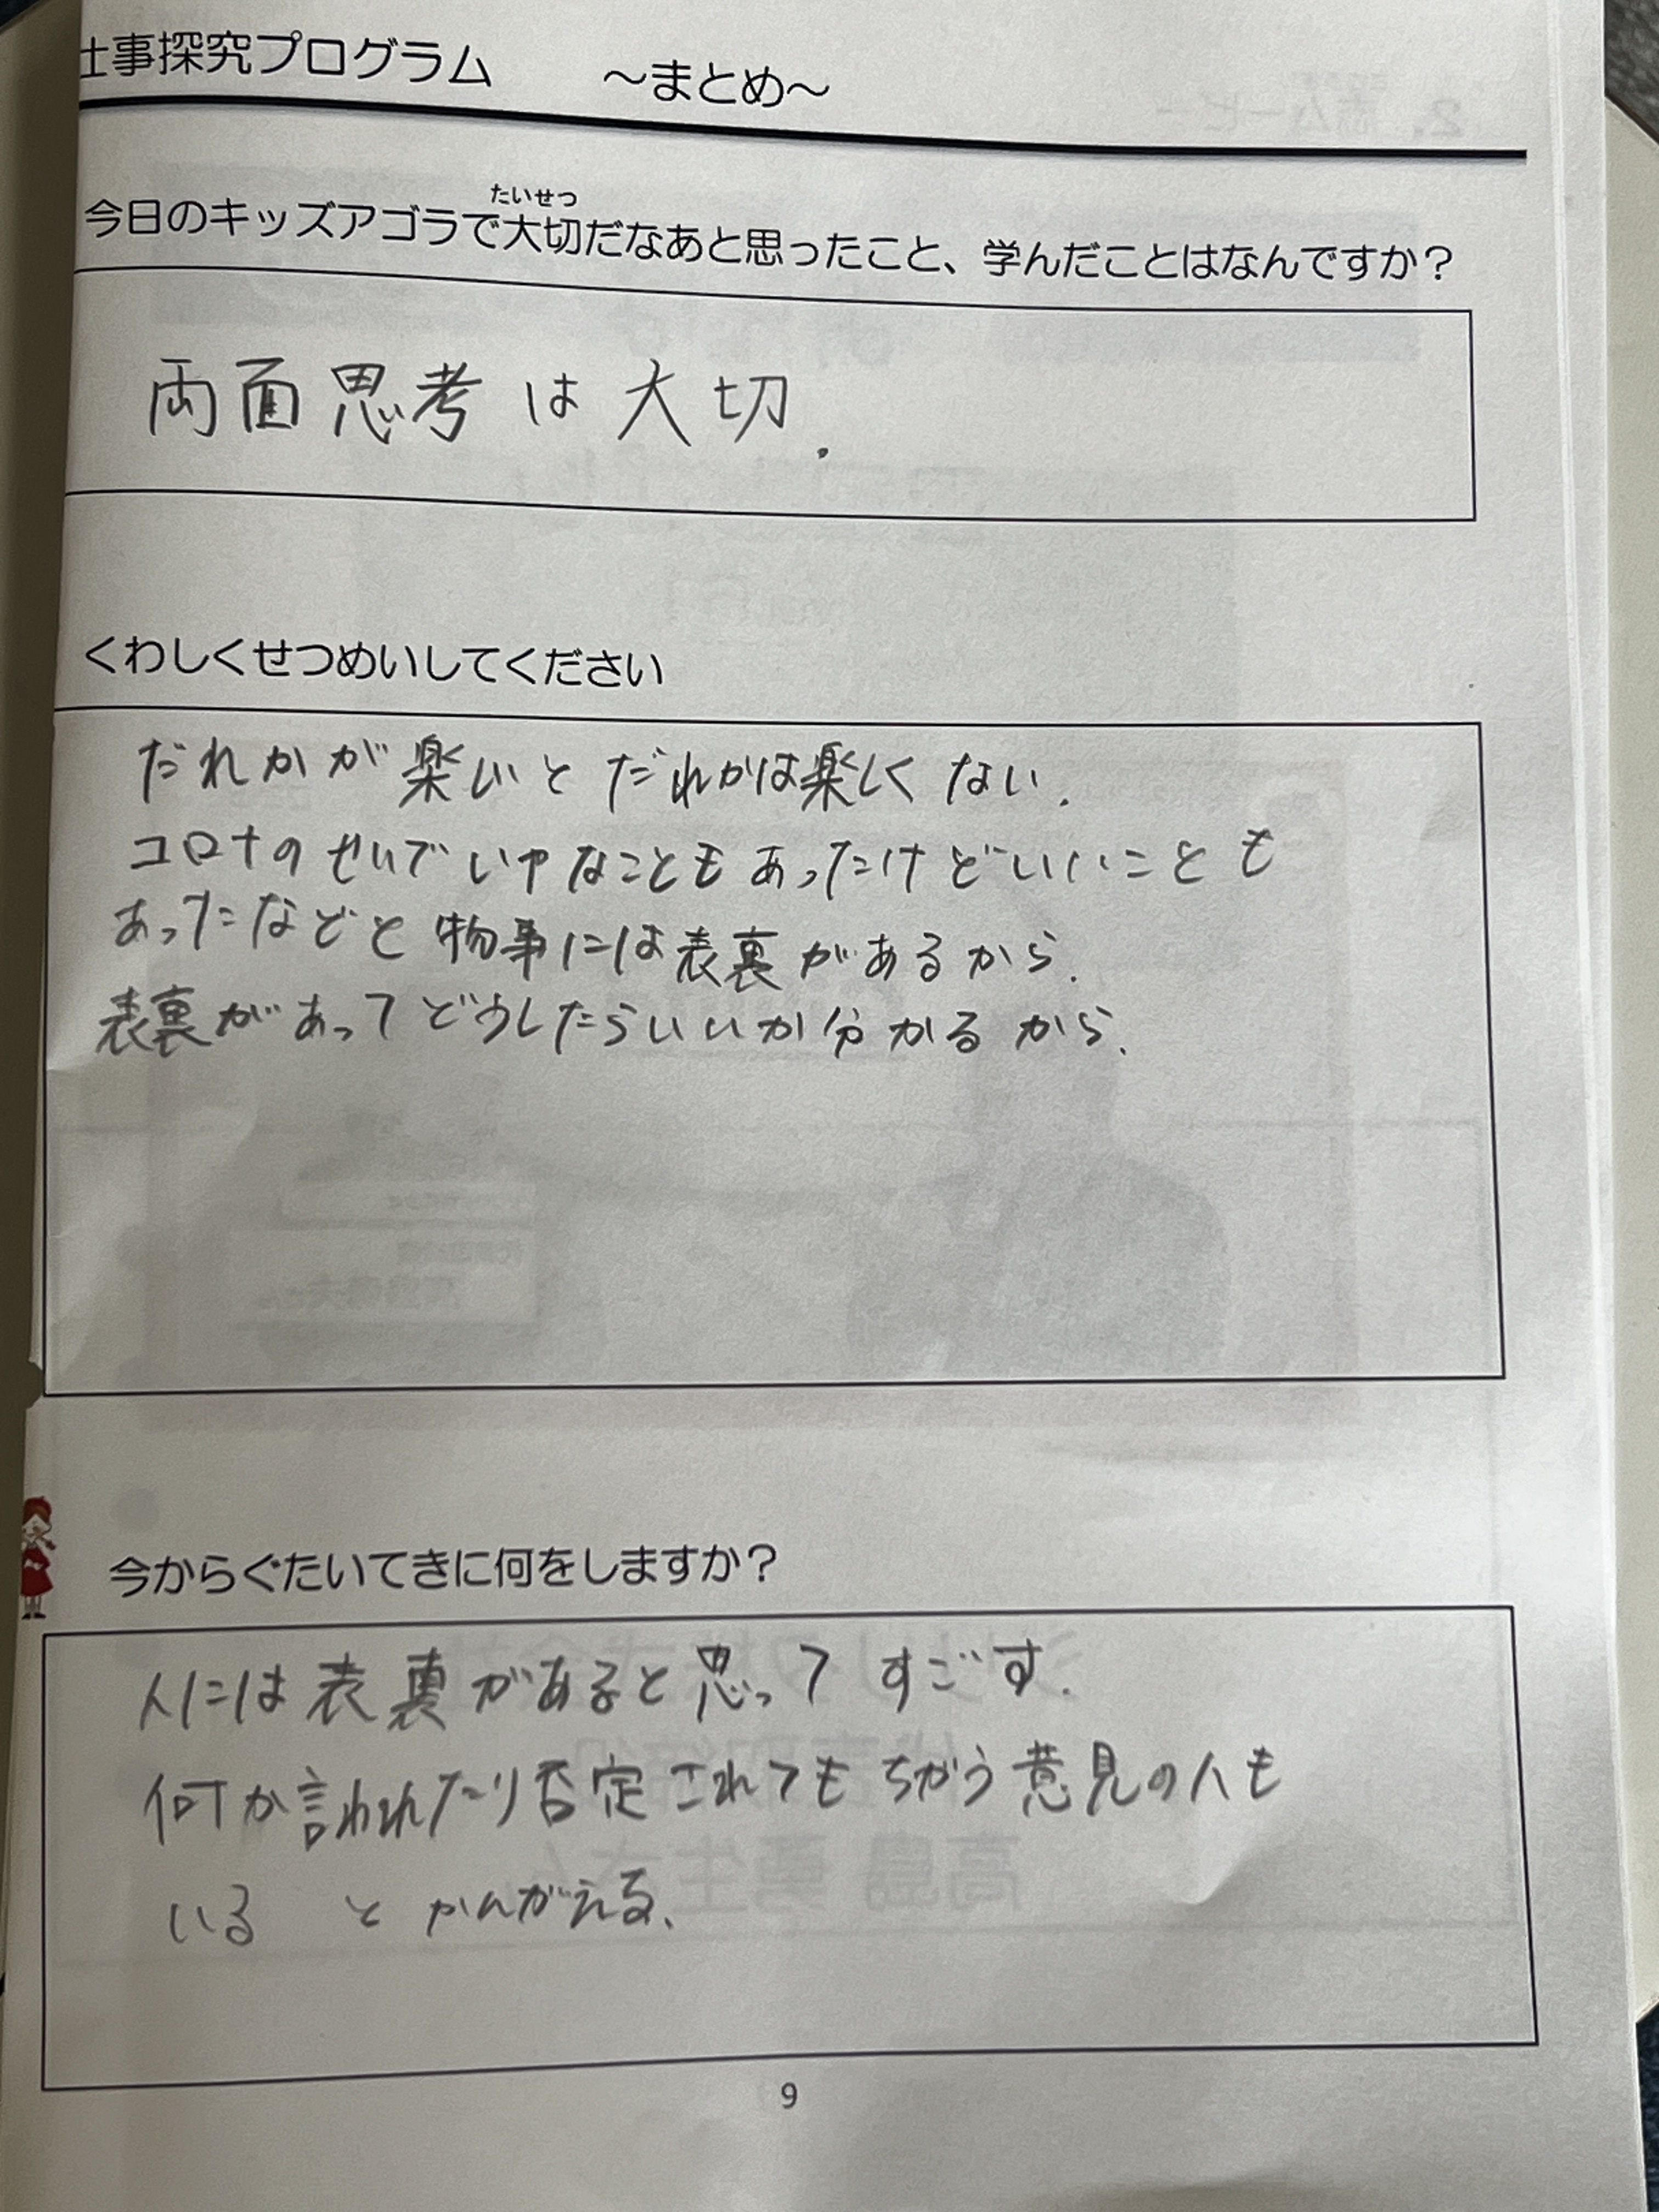 仕事探究プログラム　～まとめ～
たいせつ
今日のキッズアゴラで大切だなあと思ったこと、学んだことはなんですか？
両面思考は大切.
くわしくせつめいしてください
だれかが楽しいとだれかは楽しくない.
コロナのせいでいやなこともあったけどいいことも
あったなどと物事には表裏があるから.
表裏があってどうしたらいいか分かるから.
今からぐたいてきに何をしますか？
人には表裏があると思ってすごす.
何か言われたり否定されてもちがう意見の人も
いる　とかんがえる、
9